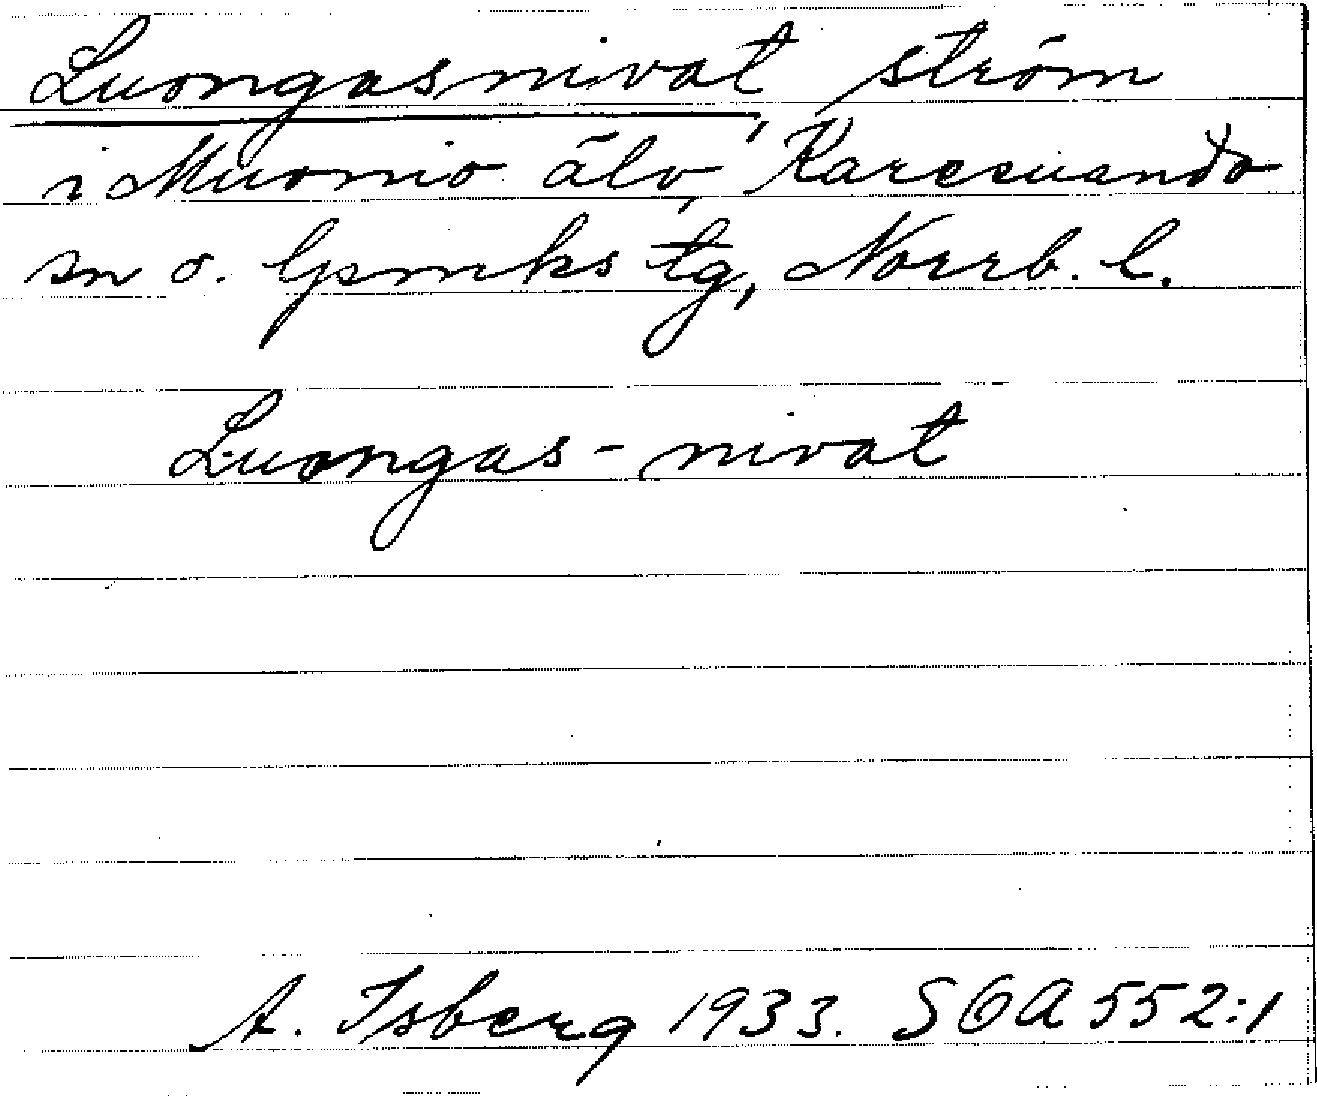 Luongasnivat, ström
i Muonio älv, Karesuando
sn o. lpmks tg, Norrb. l.
Luongas-nivat
A. Isberg 1933. SOA 552:1